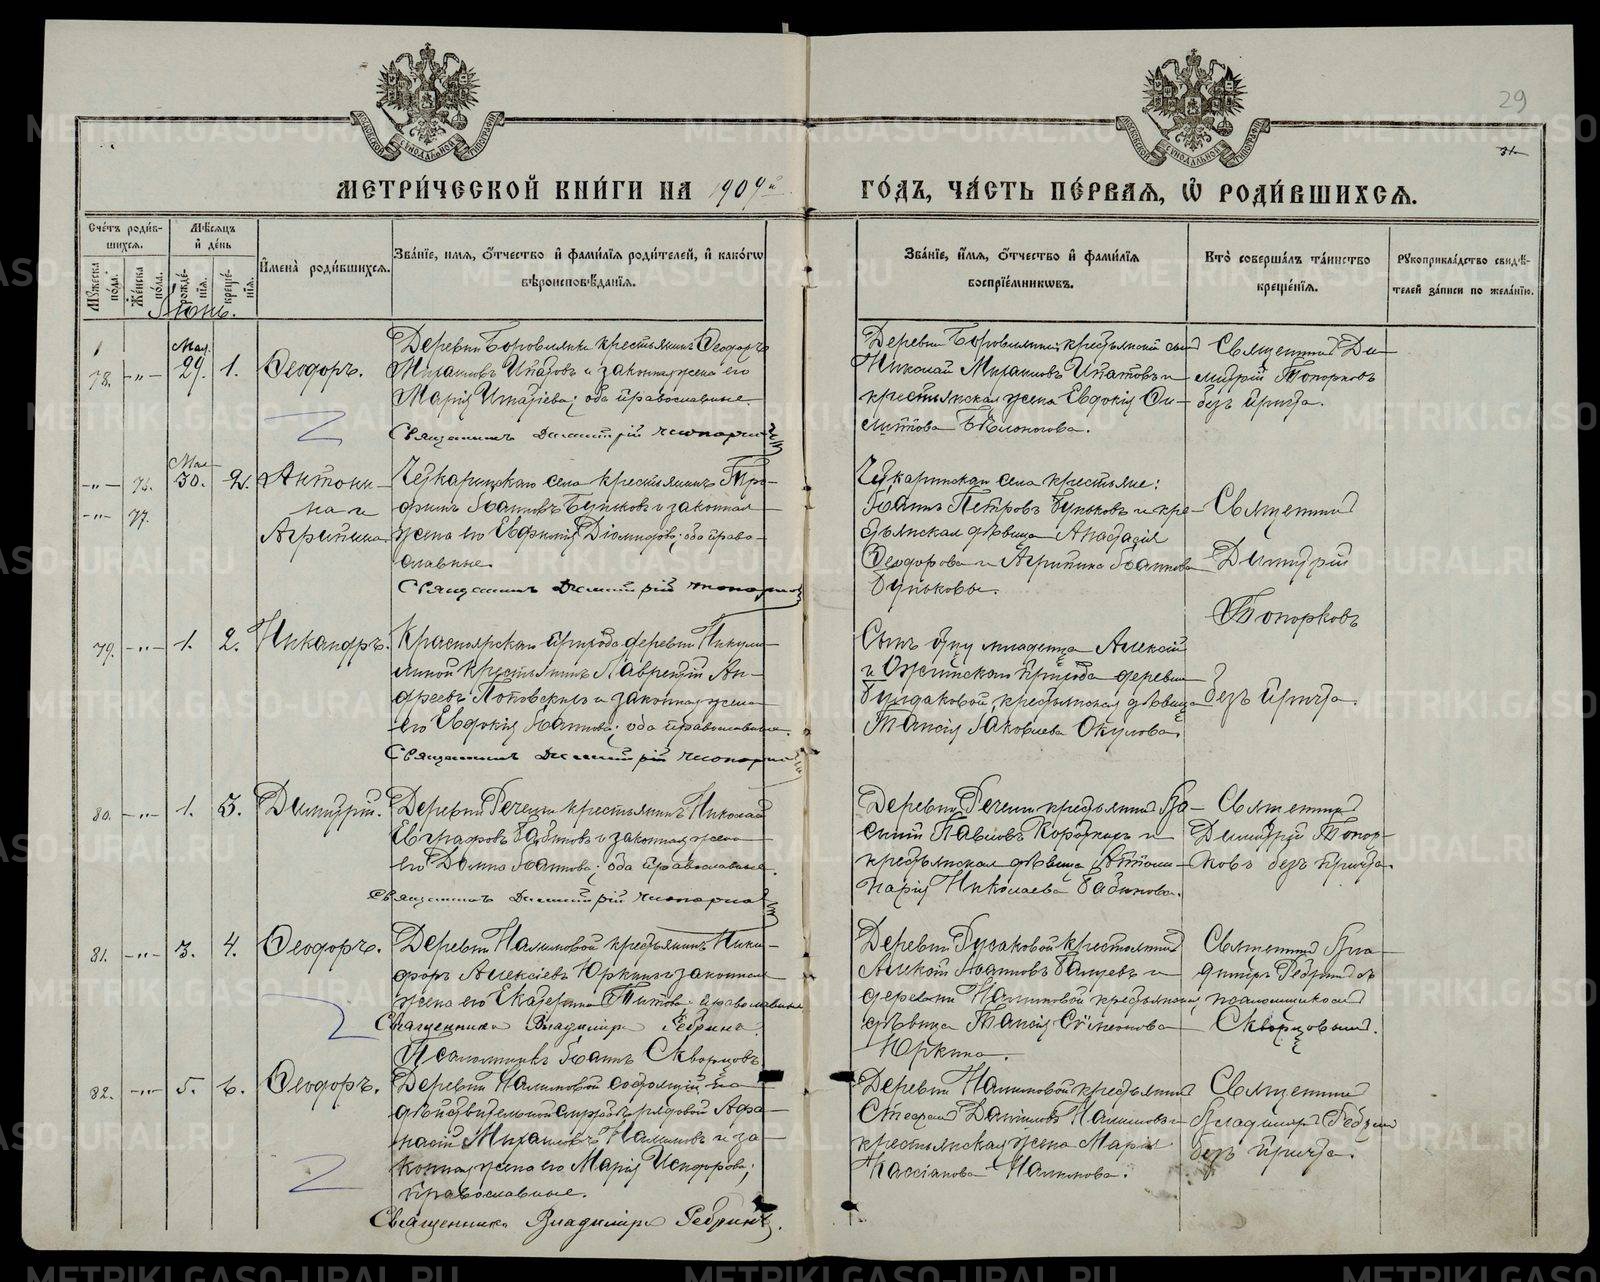 29
31
МЕТРИ́ЧЕСКОЙ КНИ́ГИ НА 1909й
ГО́ДЪ, ЧА́СТЬ ПЕ́РВАЯ, Ѡ҆ РОДИ́ВШИХСЯ.
Сче́тъ роди́в-
шихся.
Мѣ́сяцъ
и҆ де́нь
Мꙋ́жеска
по́ла.
Же́нска
по́ла.
рожде́-
нїя.
креще́-
нїя.
И҆мена̀ роди́вшихся.
Зва́нїе, имя, ѻ҆́тчество и҆ фами́лїя роди́телей, и҆ како́гѡ
вѣроисповѣ́данїя.
Зва́нїе, и҆́мя, ѻ҆́тчество и҆ фами́лїя
воспрїе́мникѡвъ.
Кто̀ соверша́лъ та́инство
креще́нїя.
Рꙋкоприкла́дство свидѣ́-
телей за́писи по жела́нїю.
Іюнь.
78. -"-
Мая
29. 1.
Ѳеодоръ.
Деревни Боровлянки крестьянинъ Ѳеодоръ
Михаиловъ Ипатовъ и законная жена его
Марія; оба православные.
Священникъ Димитрій Топорковъ
Деревни Боровлянки крестьянскій сынъ
Николай Михаиловъ Ипатовъ и
крестьянская жена Евдокія
Бѣлоногова.
Священникъ Ди-
митрій Топорковъ
безъ причта.
-"- 76.
-"- 77.
Мая
30. 2.
Антони-
на и
Агрипина
села крестьянинъ Тро-
фимъ Іоанновъ Буньковъ и законная
жена его Діомидова; оба право-
славные.
Священникъ Димитрій Топорковъ
села крестьяне:
Іоаннъ Петровъ Буньковъ и кре-
стьянская дѣвица Анастасія
Ѳеодорова и Агрипина Іоаннова
Буньковы.
Священникъ
Димитрій
Топорковъ
79. -"- 1. 2.
Никандръ.
Красноярскаго прихода деревни
крестьянинъ Лаврентій Ан-
дреевъ и законная жена
его Евдокія Іоаннова; оба православные.
Священникъ Димитрій Топорковъ
Сынъ отцу младенца Алексій
и прихода деревни
Бурдаковой, крестьянская дѣвица
Таисія Іаковлева Окулова.
безъ причта.
80. -"- 1. 3.
Димитрій.
Деревни Речелги крестьянинъ Николай
Евграфовъ и законная жена
его Домна Іоаннова; оба православные.
Священникъ Димитрій Топорковъ
Деревни Речелги крестьянинъ Ва-
силій Павловъ Коротких и
крестьянская дѣвица
Николаева Бабинова.
Священникъ
Димитрій Топор-
ковъ безъ причта.
81. -"- 3. 4.
Ѳеодоръ.
Деревни Налимовой крестьянинъ Ники-
форъ Алексіевъ Юркинъ и законная
жена его Екатерина Титова; православные
Священникъ Владиміръ Ребринъ.
Псаломщикъ Іоаннъ Скворцовъ
Деревни Русаковой крестьянинъ
Алексій Іоанновъ и
деревни Налимовой крестьянская
дѣвица Таисія Симеонова
Юркина.
Священникъ Вла-
диміръ Ребринъ съ
псаломщикомъ
Скворцовымъ.
82. -"- 5. 6.
Ѳеодоръ.
Деревни Налимовой состоящій на
дѣйствительной службѣ рядовой Аѳа-
насій Михаиловъ Налимовъ и за-
конная жена его Марія Исидорова;
православные.
Священникъ Владиміръ Ребринъ.
Деревни Налимовой крестьянинъ
Стефанъ Даніиловъ Налимовъ и
крестьянская жена Марія
Кассіанова Налимова.
Священникъ
Владиміръ Ребринъ
безъ причта.
METRIKI.GASO-URAL.RU